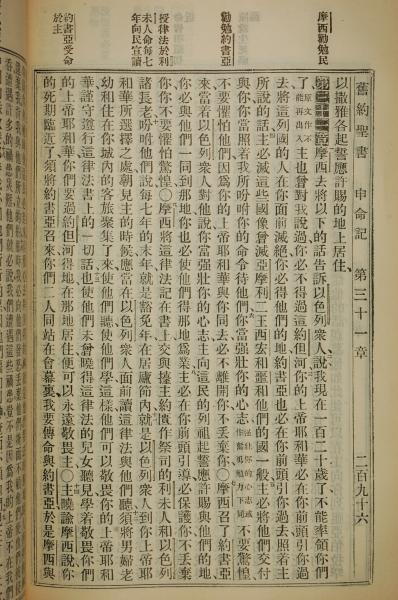 舊約聖書 申命記 第三十一章 二百九十六
摩西勸勉民
勸勉約書亞
授律法於利
未人命每七
年向民宣讀
約書亞受命
於主
以撒雅各起誓應許賜的地上居住
第三十一章 摩西去將以下的話告訴以色列衆人說我現在一百二十歲了不能率領你們
了原文作不能再出入主也曾對我說過你必不得過這約但河你的上帝耶和華必在你前頭引你過
去將這列國的人在你面前滅絕你必得他們的地約書亞也必在你前頭引你過去照着主
所說的話主必滅這些國像曾滅亞摩利二王西宏和噩和他們的國一般主必將他們交付
與你你當照着我所吩咐你的命令待他們你當强壯你的心志不要驚惶
不要懼怕他們因爲你的上帝耶和華與你同去必不離開你不丟棄你○摩西召了約書亞
來當着以色列衆人對他說你當强壯你的心志主向這民的列祖起誓應許與他們的地
你必與他們一同到那地你也必使他們得那地爲業主必在你前頭引導必保護你不丟棄
你你不要懼怕驚惶○摩西將這律法記在書上交與擡主約匱作祭司的利未人和以色列
諸長老吩咐他們說每七年的末年就是豁免年在居廬節內就是以色列衆人到你上帝耶
和華所選擇之處朝見主的時候應當在以色列衆人面前讀這律法與他們聽須將男婦老
幼和住在你城內的客旅聚集了來使他們聽使他們學這樣他們可以敬畏你的上帝耶和
華謹守遵行這律法書上的一切話也使他們未曾曉得這律法的兒女聽見學着敬畏你們
的上帝耶和華你們要過約但河得在那地居住便可以永遠敬畏主○主曉諭摩西說你
的死期臨近了須將約書亞召來你們二人同站在會幕裏我要傳命與約書亞於是摩西與